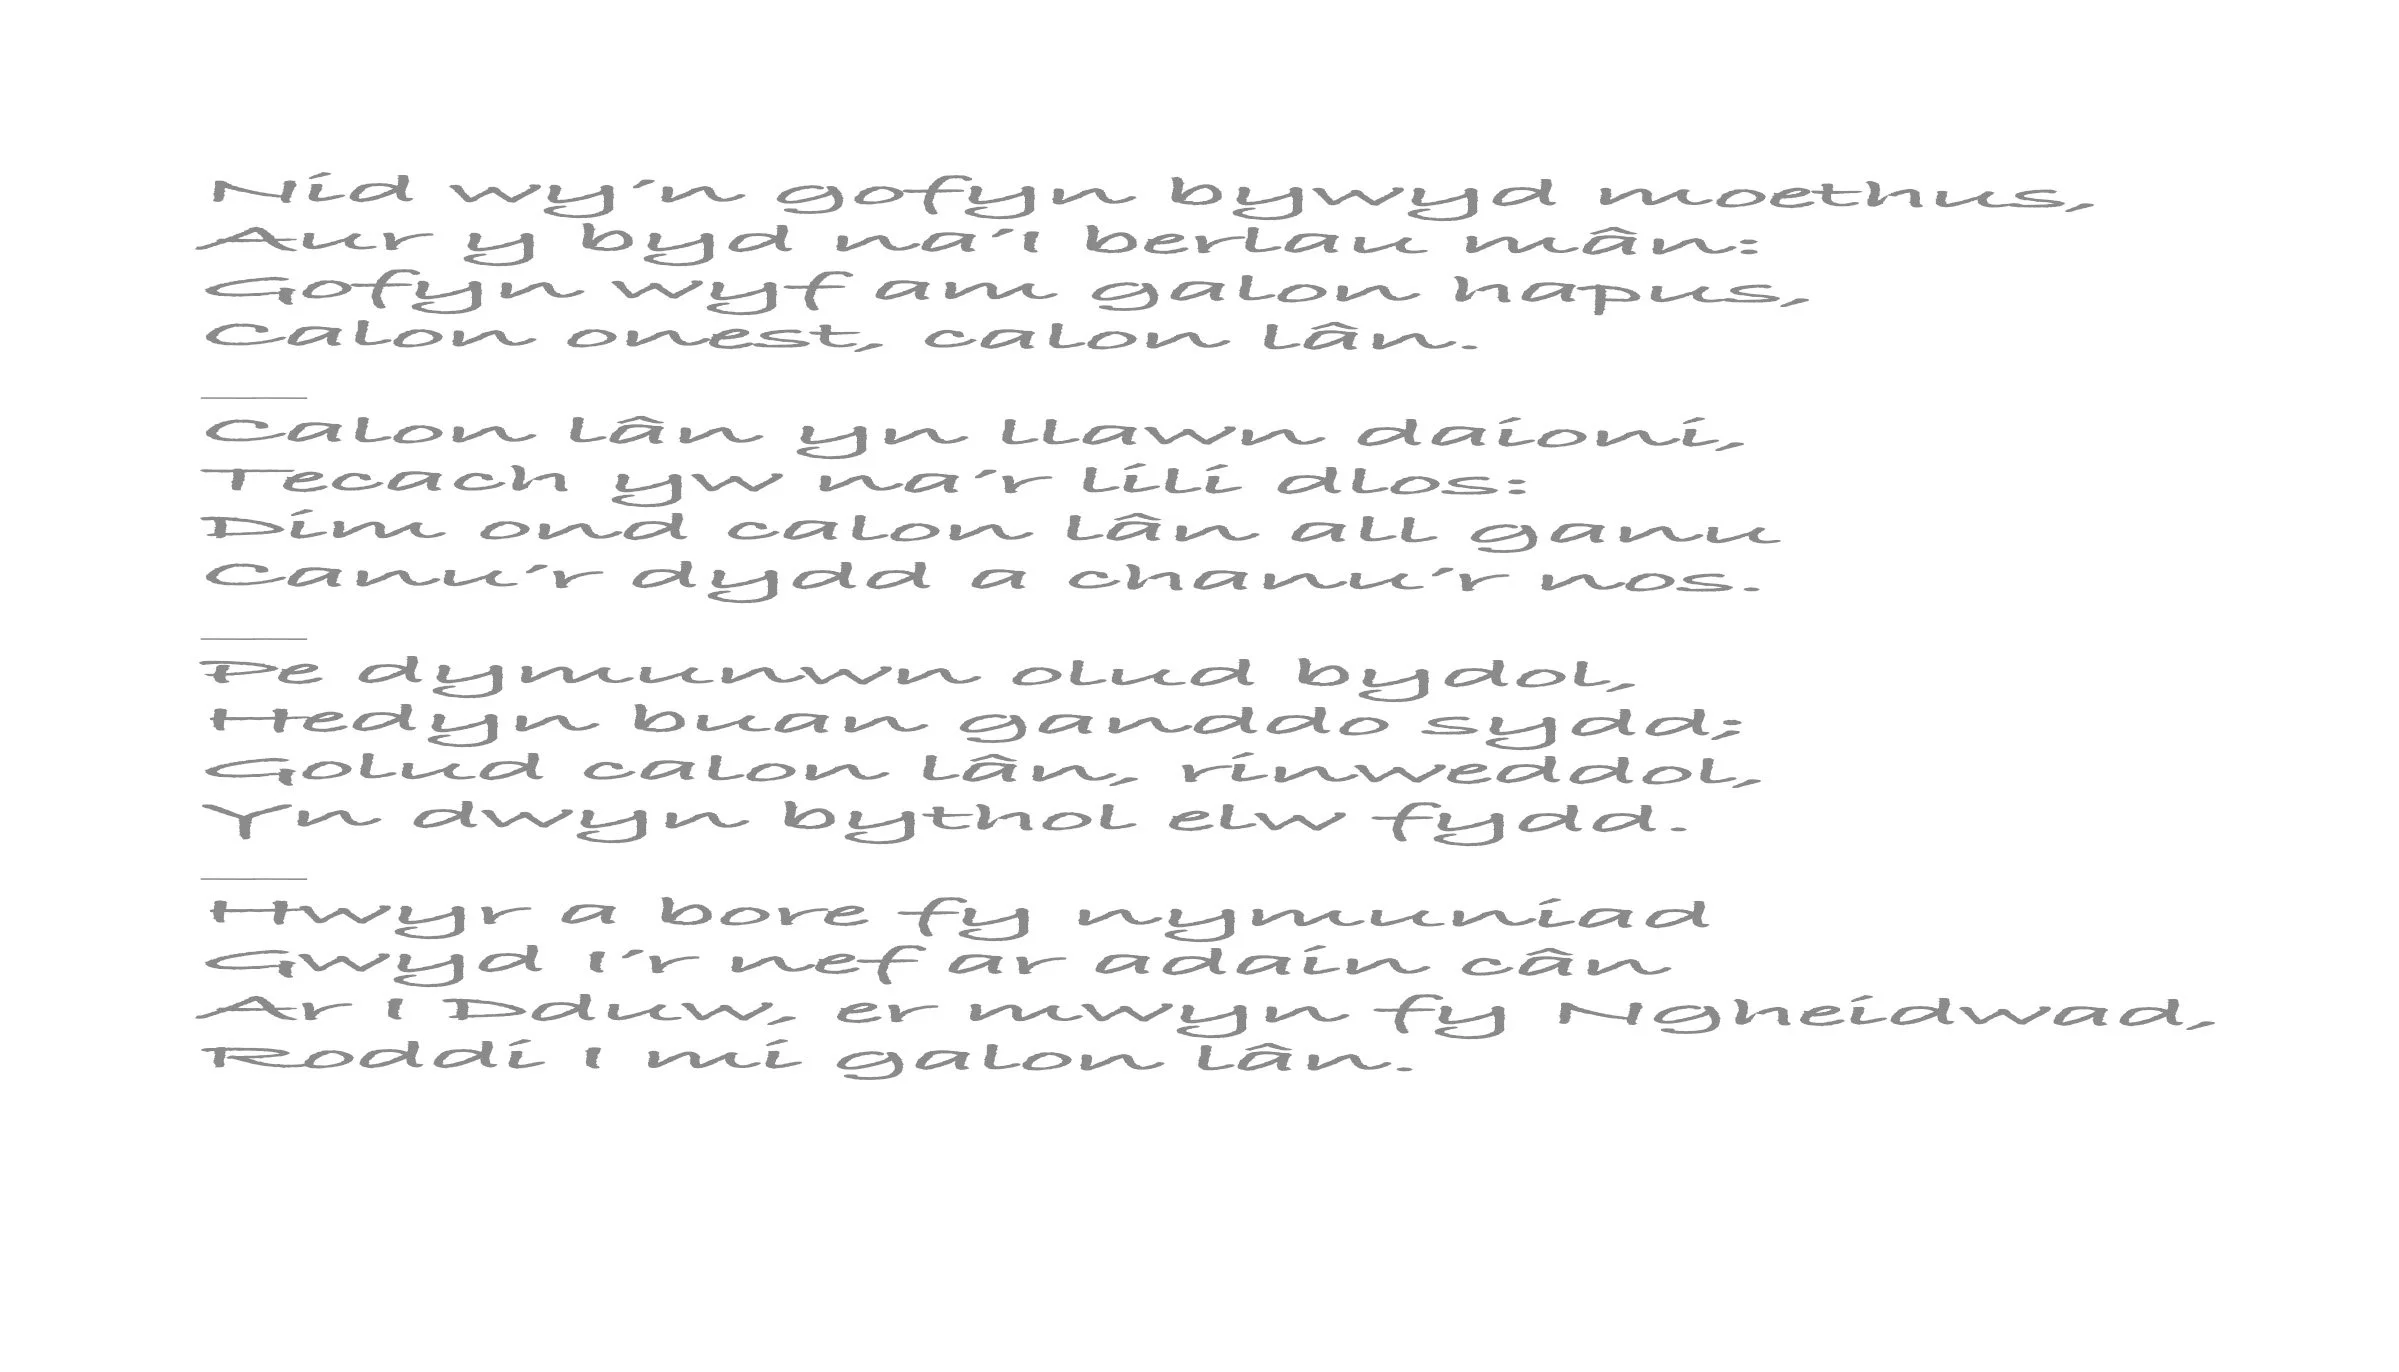 Nid wy'n gofyn bywyd moethus,
Aur y byd na'I berlau mân:
Gofyn wyf am galon hapus,
Calon onest, calon lân.
____
Calon lân yn llawn daioni,
Tecach yw na'r lili dlos:
Dim ond calon lân all ganu
Canu'r dydd a chanu'r nos.
____
Pe dymunwn olud bydol,
Hedyn buan ganddo sydd;
Golud calon lân, rinweddol,
Yn dwyn bythol elw fydd.
____
Hwyr a bore fy nymuniad
Gwyd I'r nef ar adain cân
Ar I Dduw, er mwyn fy Ngheidwad,
Roddi I mi galon lân.